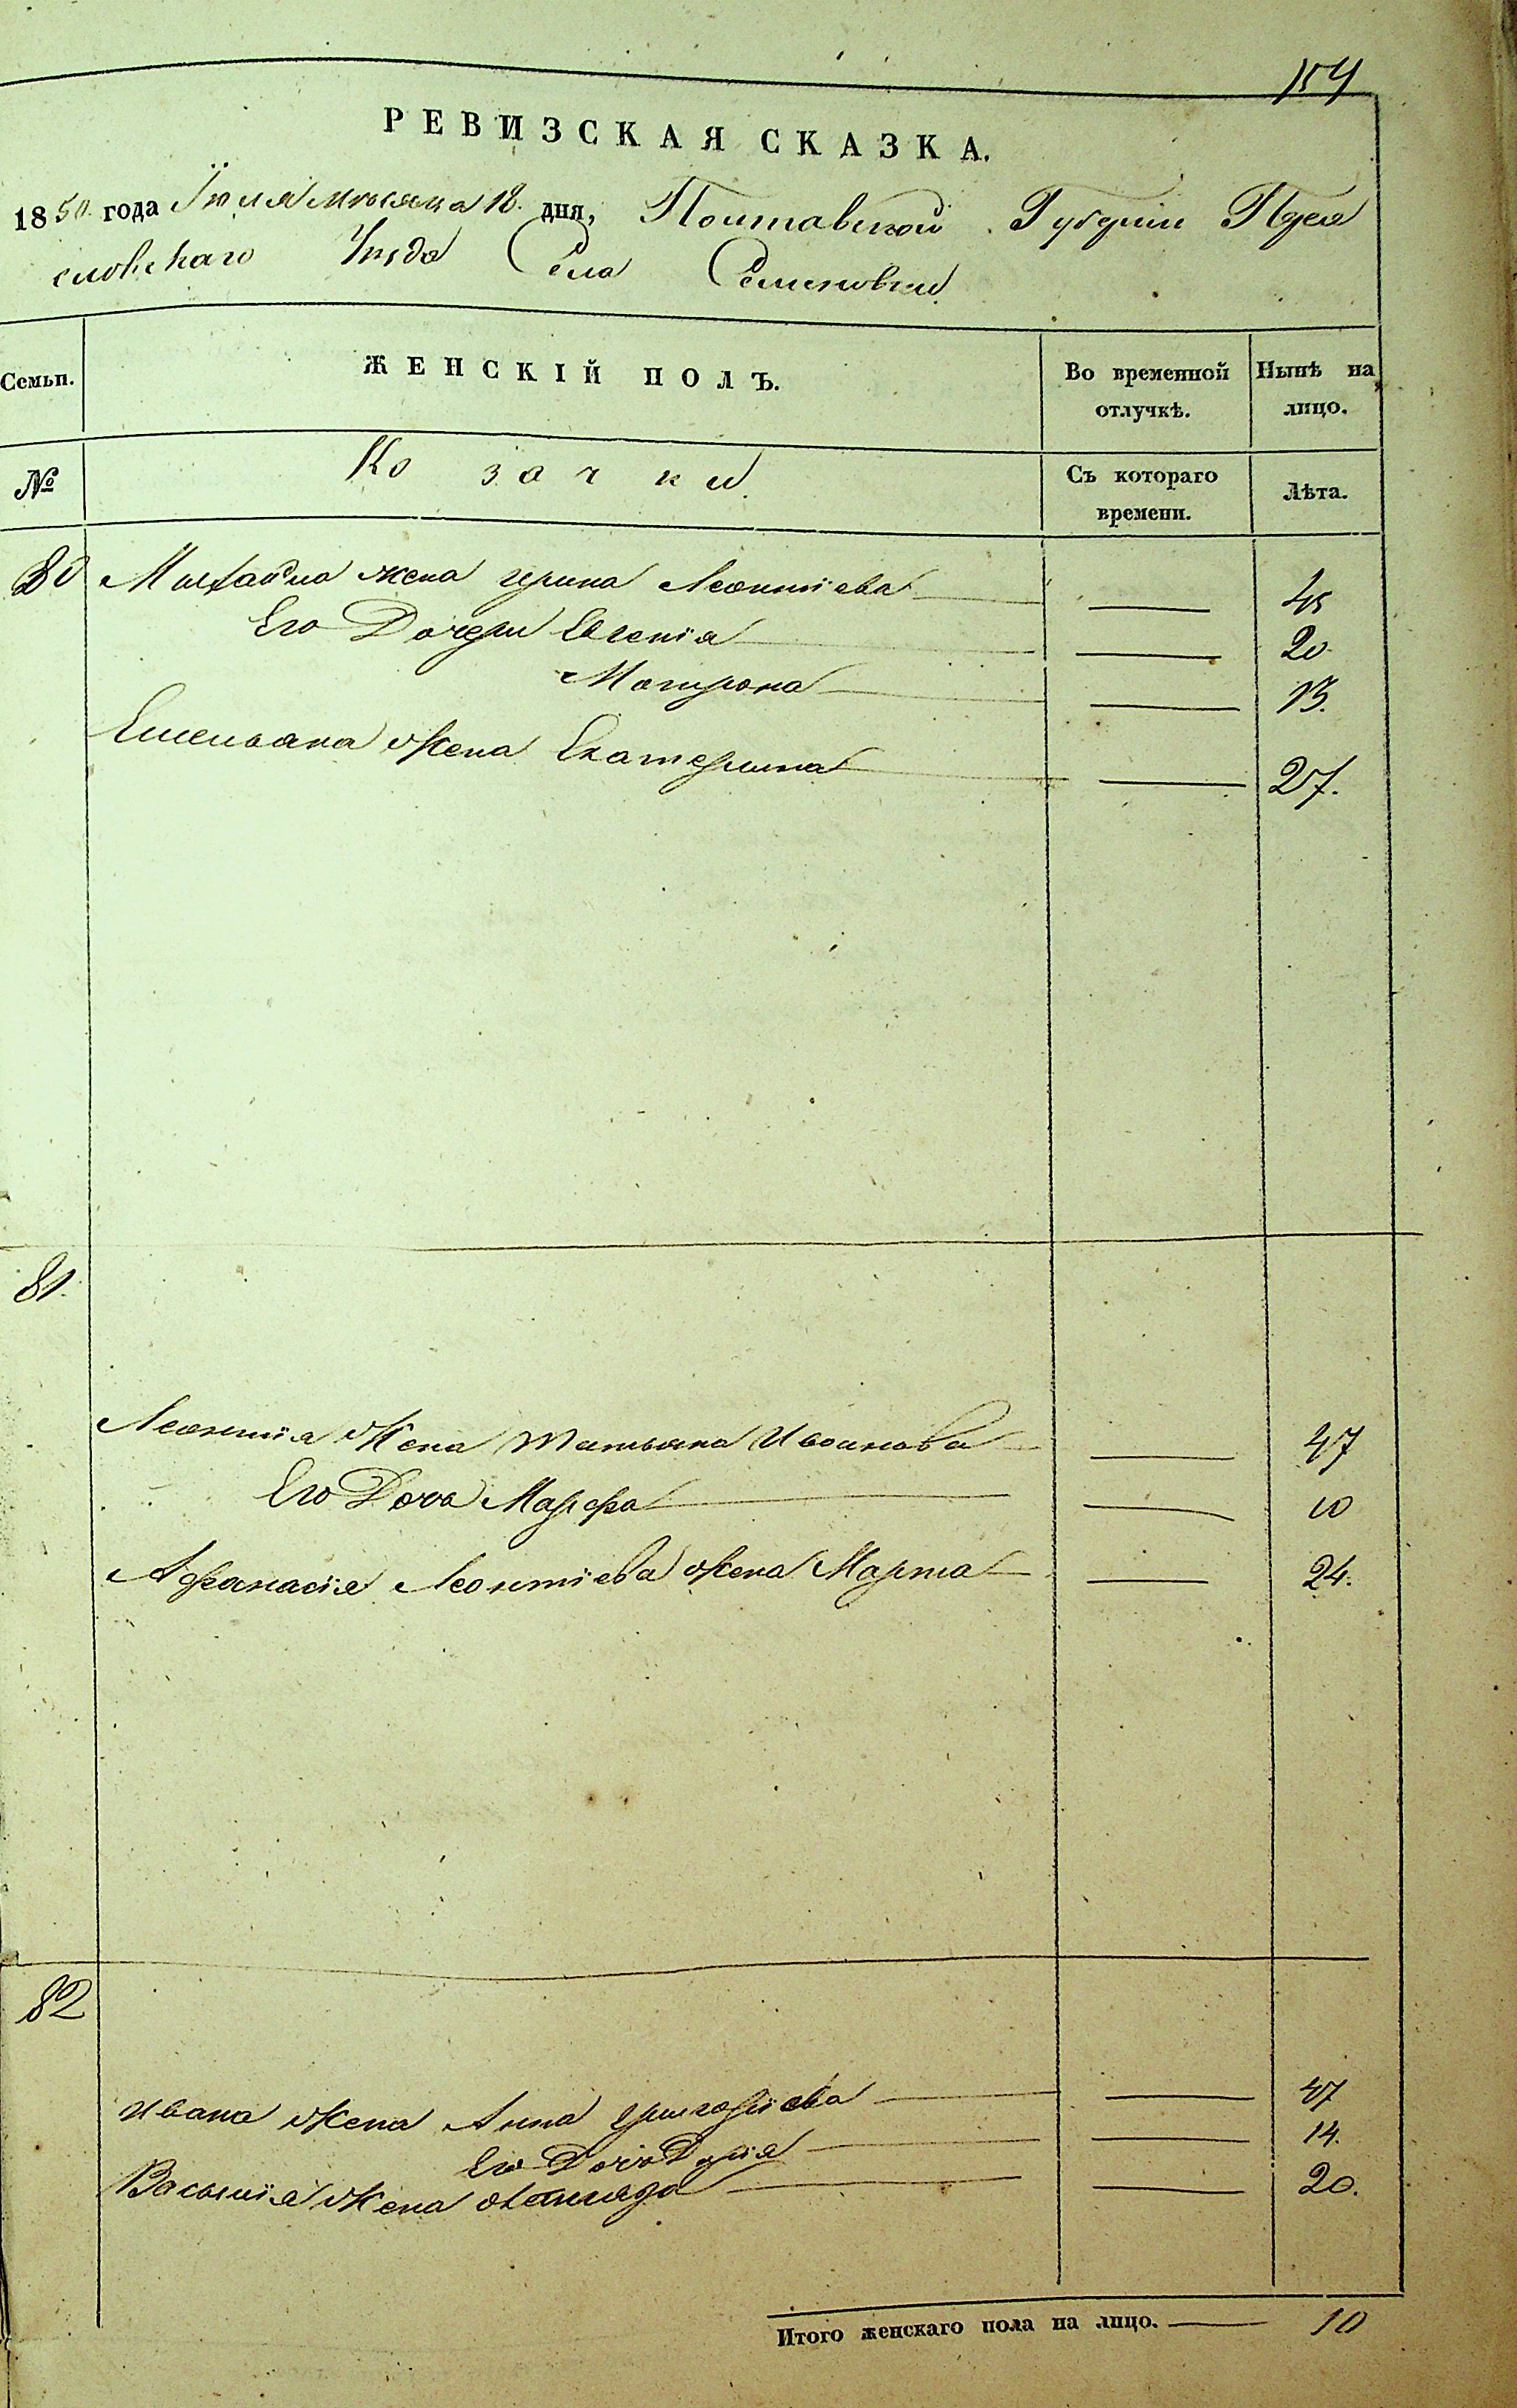 154
РЕВИЗСКАЯ СКАЗКА.
1850 года Іюля мѣсяца 18. дня, Полтавской Губерніи Перея
словскаго Уѣзда Села Семеновки
Семьи. ЖЕНСКІЙ ПОЛЪ. Во временной отлучкѣ. Нынѣ на лицо.
№ Козачки Съ котораго времени. Лѣта.
80 Михайла жена Ирина Леонтіева — 45
Его Дочери Евгенія — 20
Мотрона — 13.
Емельяна Жена Екатерина — 27.
81.
Леонтія Жена Татьяна Иванова — 47
Его Дочь Марфа — 10
Афанасія Леонтіева Жена Марта — 24.
82
Ивана Жена Анна Григоріева — 47
Его Дочь Дарія — 14.
Василія Жена — 20.
Итого женскаго пола на лицо. — 10